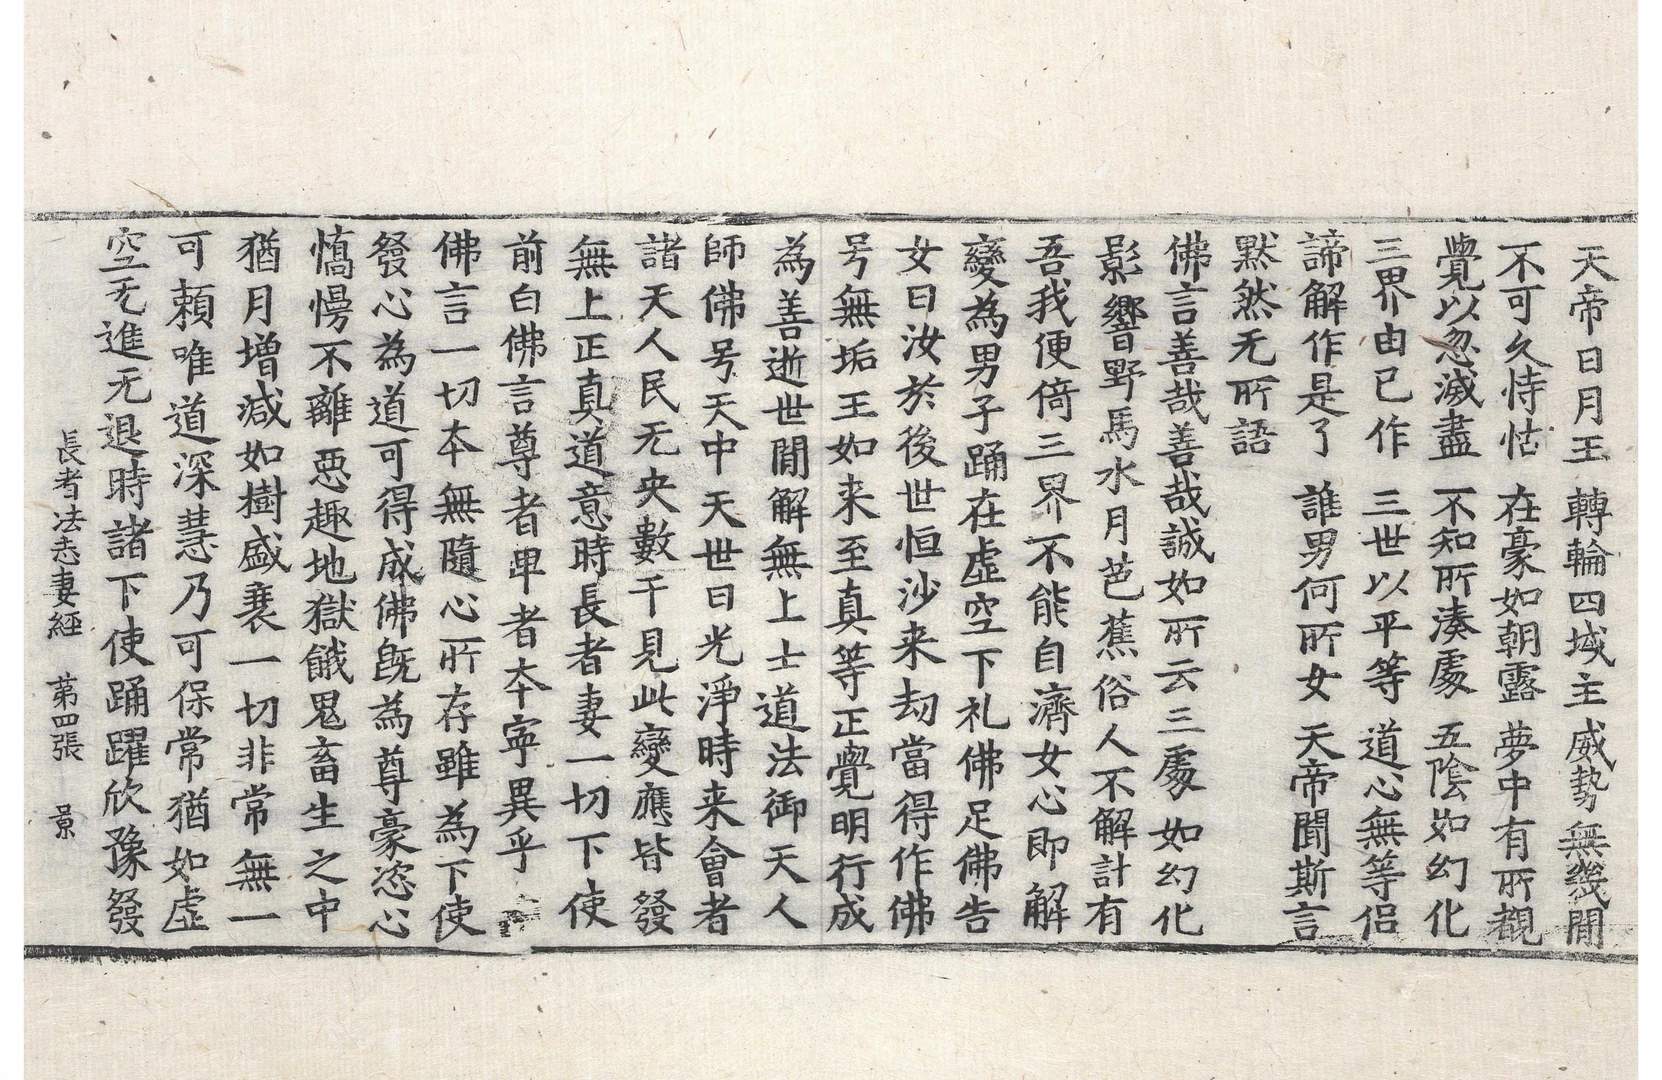 天帝日月王 轉輪四域主 威勢無幾閒
不可久恃怙 在豪如朝露 夢中有所覩
覺以忽滅盡 不知所湊處 五陰如幻化
三界由已作 三世以平等 道心無等侣
諦解作是了 誰男何所女 天帝聞斯言
默然无所語
佛言善哉善哉誠如所云三處如幻化
影響野馬水月芭蕉俗人不解計有
吾我便倚三界不能自濟女心即解
變為男子踊在虛空下礼佛足佛告
女曰汝於後世恒沙来劫當得作佛
号無垢王如来至真等正覺明行成
為善逝世閒解無上士道法御天人
師佛号天中天世曰光淨時来會者
諸天人民无央數千見此變應皆發
無上正真道意時長者妻一切下使
前白佛言尊者卑者本寜異乎
佛言一切本無隨心所存雖為下使
發心為道可得成佛旣為尊豪恣心
憍慢不離惡趣地獄餓鬼畜生之中
猶月增減如樹盛衰一切非常無一
可頼唯道深慧乃可保常猶如虛
空无進无退時諸下使踊躍欣豫發
長者法志妻經 苐四張 景